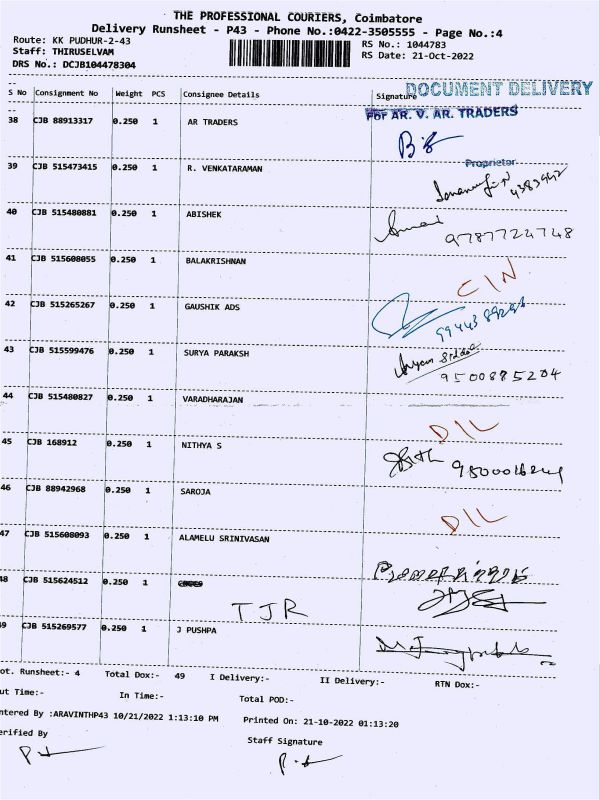 THE PROFESSIONAL COURIERS, Coimbatore
Delivery Runsheet - P43 - Phone No.:0422-3505555 - Page No.:4
Route: KK PUDHUR-2-43
RS No.: 1044783
Staff: THIRUSELVAM
RS Date: 21-Oct-2022
DRS No.: DCJB104478304
DOCUMENT DELIVERY
S No Consignment No Weight PCS Consignee Details Signature
For AR. V. AR. TRADERS
38 CJB 88913317 0.250 1 AR TRADERS
Proprietor
39 CJB 515473415 0.250 1 R. VENKATARAMAN
40 CJB 515480881 0.250 1 ABISHEK
9787724748
41 CJB 515608055 0.250 1 BALAKRISHNAN
C/N
42 CJB 515265267 0.250 1 GAUSHIK ADS
43 CJB 515599476 0.250 1 SURYA PARAKSH
9500885204
44 CJB 515480827 0.250 1 VARADHARAJAN
D/L
45 CJB 168912 0.250 1 NITHYA S
46 CJB 88942968 0.250 1 SAROJA
D/L
47 CJB 515608093 0.250 1 ALAMELU SRINIVASAN
48 CJB 515624512 0.250 1
TJR
49 CJB 515269577 0.250 1 J PUSHPA
ot. Runsheet:- 4 Total Dox:- 49 I Delivery:- II Delivery:- RTN Dox:-
ut Time:- In Time:- Total POD:-
ntered By :ARAVINTHP43 10/21/2022 1:13:10 PM Printed On: 21-10-2022 01:13:20
erified By Staff Signature